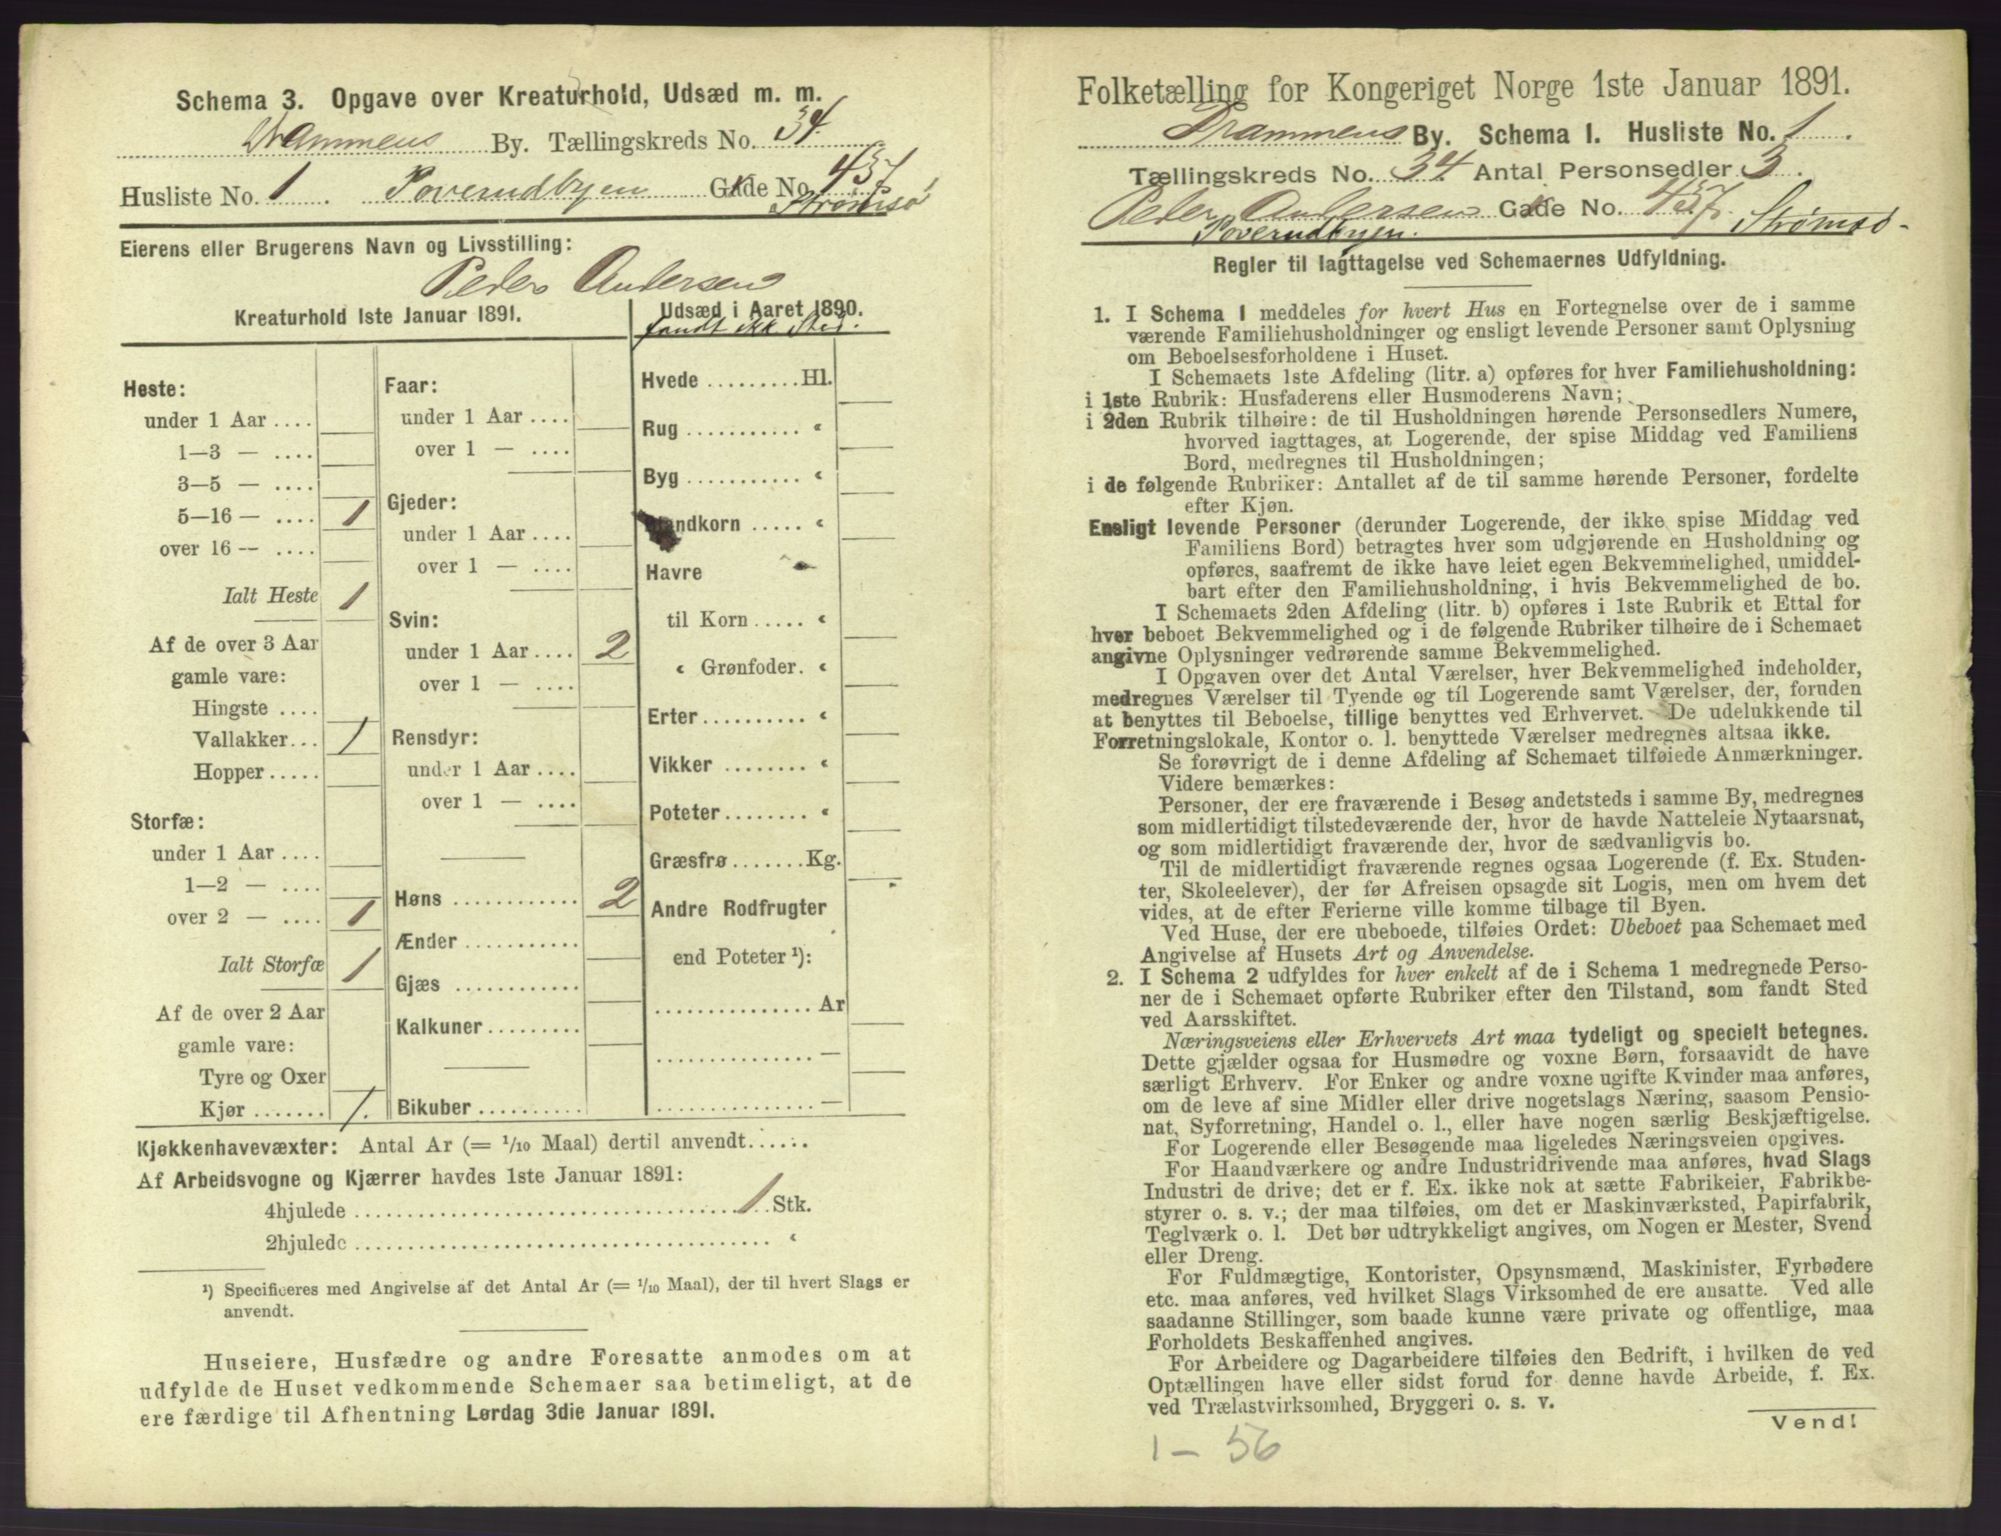 Schema 3. Opgave over Kreaturhold, Udsæd m. m.
Drammens By. Tællingskreds No. 34.
Husliste No. 1. Poverudbyen Gade No. 457
Strømsø
Eierens eller Brugerens Navn og Livsstilling:
Peder Andersen
Kreaturhold 1ste Januar 1891.
Heste:
under 1 Aar ....
1—3 — ....
3—5 — ....
5—16 — .... 1
over 16 — ....
Ialt Heste 1
Af de over 3 Aar
gamle vare:
Hingste ....
Vallakker... 1
Hopper.....
Storfæ:
under 1 Aar ....
1—2 — ....
over 2 — .... 1
Ialt Storfæ 1
Af de over 2 Aar
gamle vare:
Tyre og Oxer
Kjør ....... 1.
Faar:
under 1 Aar ....
over 1 — ....
Gjeder:
under 1 Aar ....
over 1 — ....
Svin:
under 1 Aar .... 2
over 1 — ....
Rensdyr:
under 1 Aar ....
over 1 — ....
Høns ............ 2
Ænder ...........
Gjæs ............
Kalkuner.........
Bikuber ..........
Udsæd i Aaret 1890.
fandt ikk Sted.
Hvede .........Hl.
Rug ........... "
Byg ........... "
Blandkorn ..... "
Havre
til Korn ..... "
" Grønfoder. "
Erter.......... "
Vikker ........ "
Poteter........ "
Græsfrø .......Kg.
Andre Rodfrugter
end Poteter ¹):
............... Ar
............... —
............... —
Kjøkkenhavevæxter: Antal Ar (= 1/10 Maal) dertil anvendt......
Af Arbeidsvogne og Kjærrer havdes 1ste Januar 1891:
4hjulede ........................................ 1 Stk.
2hjulede ........................................ "
¹) Specificeres med Angivelse af det Antal Ar (= 1/10 Maal), der til hvert Slags er
anvendt.
Huseiere, Husfædre og andre Foresatte anmodes om at
udfylde de Huset vedkommende Schemaer saa betimeligt, at de
ere færdige til Afhentning Lørdag 3die Januar 1891.
Folketælling for Kongeriget Norge 1ste Januar 1891.
Drammens By. Schema 1. Husliste No. 1.
Tællingskreds No. 34 Antal Personsedler 3.
Peder Andersen Gade No. 457. Strømsø.
Poverudbyen.
Regler til Iagttagelse ved Schemaernes Udfyldning.
1. I Schema 1 meddeles for hvert Hus en Fortegnelse over de i samme
værende Familiehusholdninger og ensligt levende Personer samt Oplysning
om Beboelsesforholdene i Huset.
I Schemaets 1ste Afdeling (litr. a) opføres for hver Familiehusholdning:
i 1ste Rubrik: Husfaderens eller Husmoderens Navn;
i 2den Rubrik tilhøire: de til Husholdningen hørende Personsedlers Numere,
hvorved iagttages, at Logerende, der spise Middag ved Familiens
Bord, medregnes til Husholdningen;
i de følgende Rubriker: Antallet af de til samme hørende Personer, fordelte
efter Kjøn.
Ensligt levende Personer (derunder Logerende, der ikke spise Middag ved
Familiens Bord) betragtes hver som udgjørende en Husholdning og
opføres, saafremt de ikke have leiet egen Bekvemmelighed, umiddel-
bart efter den Familiehusholdning, i hvis Bekvemmelighed de bo.
I Schemaets 2den Afdeling (litr. b) opføres i 1ste Rubrik et Ettal for
hver beboet Bekvemmelighed og i de følgende Rubriker tilhøire de i Schemaet
angivne Oplysninger vedrørende samme Bekvemmelighed.
I Opgaven over det Antal Værelser, hver Bekvemmelighed indeholder,
medregnes Værelser til Tyende og til Logerende samt Værelser, der, foruden
at benyttes til Beboelse, tillige benyttes ved Erhvervet. De udelukkende til
Forretningslokale, Kontor o. l. benyttede Værelser medregnes altsaa ikke.
Se forøvrigt de i denne Afdeling af Schemaet tilføiede Anmærkninger.
Videre bemærkes:
Personer, der ere fraværende i Besøg andetsteds i samme By, medregnes
som midlertidigt tilstedeværende der, hvor de havde Natteleie Nytaarsnat,
og som midlertidigt fraværende der, hvor de sædvanligvis bo.
Til de midlertidigt fraværende regnes ogsaa Logerende (f. Ex. Studen-
ter, Skoleelever), der før Afreisen opsagde sit Logis, men om hvem det
vides, at de efter Ferierne ville komme tilbage til Byen.
Ved Huse, der ere ubeboede, tilføies Ordet: Ubeboet paa Schemaet med
Angivelse af Husets Art og Anvendelse.
2. I Schema 2 udfyldes for hver enkelt af de i Schema 1 medregnede Perso-
ner de i Schemaet opførte Rubriker efter den Tilstand, som fandt Sted
ved Aarsskiftet.
Næringsveiens eller Erhvervets Art maa tydeligt og specielt betegnes.
Dette gjælder ogsaa for Husmødre og voxne Børn, forsaavidt de have
særligt Erhverv. For Enker og andre voxne ugifte Kvinder maa anføres,
om de leve af sine Midler eller drive nogetslags Næring, saasom Pensio-
nat, Syforretning, Handel o. l., eller have nogen særlig Beskjæftigelse.
For Logerende eller Besøgende maa ligeledes Næringsveien opgives.
For Haandværkere og andre Industridrivende maa anføres, hvad Slags
Industri de drive; det er f. Ex. ikke nok at sætte Fabrikeier, Fabrikbe-
styrer o. s. v.; der maa tilføies, om det er Maskinværksted, Papirfabrik,
Teglværk o. l. Det bør udtrykkeligt angives, om Nogen er Mester, Svend
eller Dreng.
For Fuldmægtige, Kontorister, Opsynsmænd, Maskinister, Fyrbødere
etc. maa anføres, ved hvilket Slags Virksomhed de ere ansatte. Ved alle
saadanne Stillinger, som baade kunne være private og offentlige, maa
Forholdets Beskaffenhed angives.
For Arbeidere og Dagarbeidere tilføies den Bedrift, i hvilken de ved
Optællingen have eller sidst forud for denne havde Arbeide, f. Ex.
ved Trælastvirksomhed, Bryggeri o. s. v.
Vend!
1 — 56